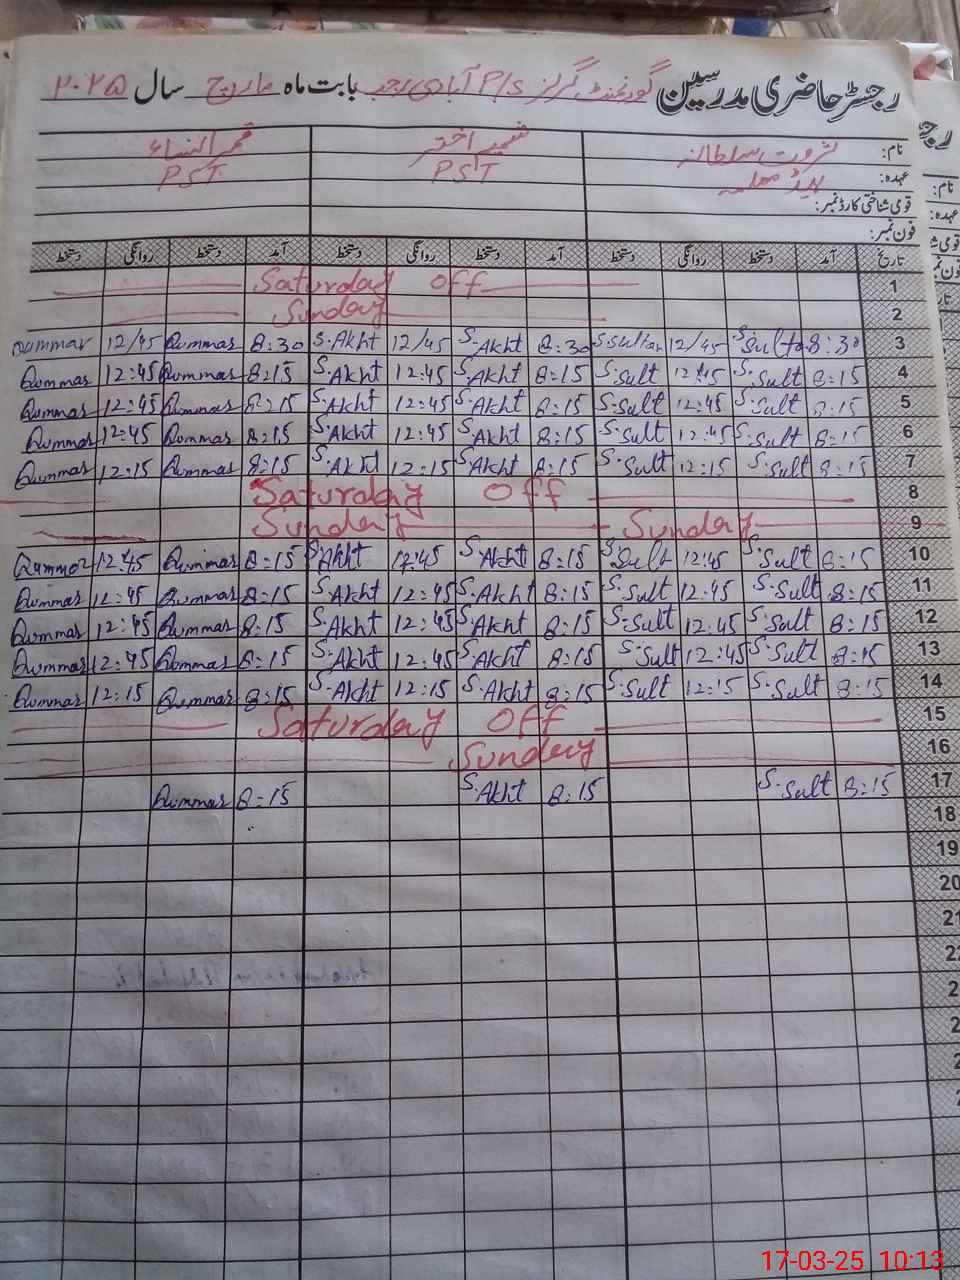 رجسٹر حاضری مدرسین گورنمنٹ گرلز P/S آبادی رجب بابت ماہ مارچ سال ۲۰۲۵
نام: ثروت سلطانہ شمیم اختر قمر النساء
عہدہ: ہیڈ معلمہ PST PST
قومی شناختی کارڈ نمبر:
فون نمبر:
تاریخ آمد دستخط روانگی دستخط آمد دستخط روانگی دستخط آمد دستخط روانگی دستخط
Saturday off 1
Sunday 2
Qummar 12/45 Qummar 8:30 S.Akht 12/45 S.Akht 8:30 S.Sultan 12/45 8:30 3
Qummar 12:45 Qummar 8:15 S.Akht 12:45 S.Akht 8:15 S.Sult 12:45 S.Sult 8:15 4
Qummar 12:45 Qummar 8:15 S.Akht 12:45 S.Akht 8:15 S.Sult 12:45 S.Sult 8:15 5
Qummar 12:45 Qummar 8:15 S.Akht 12:45 S.Akht 8:15 S.Sult 12:45 S.Sult 8:15 6
Qummar 12:15 Qummar 8:15 S.Akht 12:15 S.Akht 8:15 S.Sult 12:15 S.Sult 8:15 7
Saturday off 8
Sunday Sunday 9
Qummar 12:45 Qummar 8:15 S.Akht 12:45 S.Akht 8:15 S.Sult 12:45 S.Sult 8:15 10
Qummar 12:45 Qummar 8:15 S.Akht 12:45 S.Akht 8:15 S.Sult 12:45 S.Sult 8:15 11
Qummar 12:45 Qummar 8:15 S.Akht 12:45 S.Akht 8:15 S.Sult 12:45 S.Sult 8:15 12
Qummar 12:45 Qummar 8:15 S.Akht 12:45 S.Akht 8:15 S.Sult 12:45 S.Sult 8:15 13
Qummar 12:15 Qummar 8:15 S.Akht 12:15 S.Akht 8:15 S.Sult 12:15 S.Sult 8:15 14
Saturday off 15
Sunday 16
Qummar 8:15 S.Akht 8:15 S.Sult 8:15 17
18
19
20
21
22
17-03-25 10:13